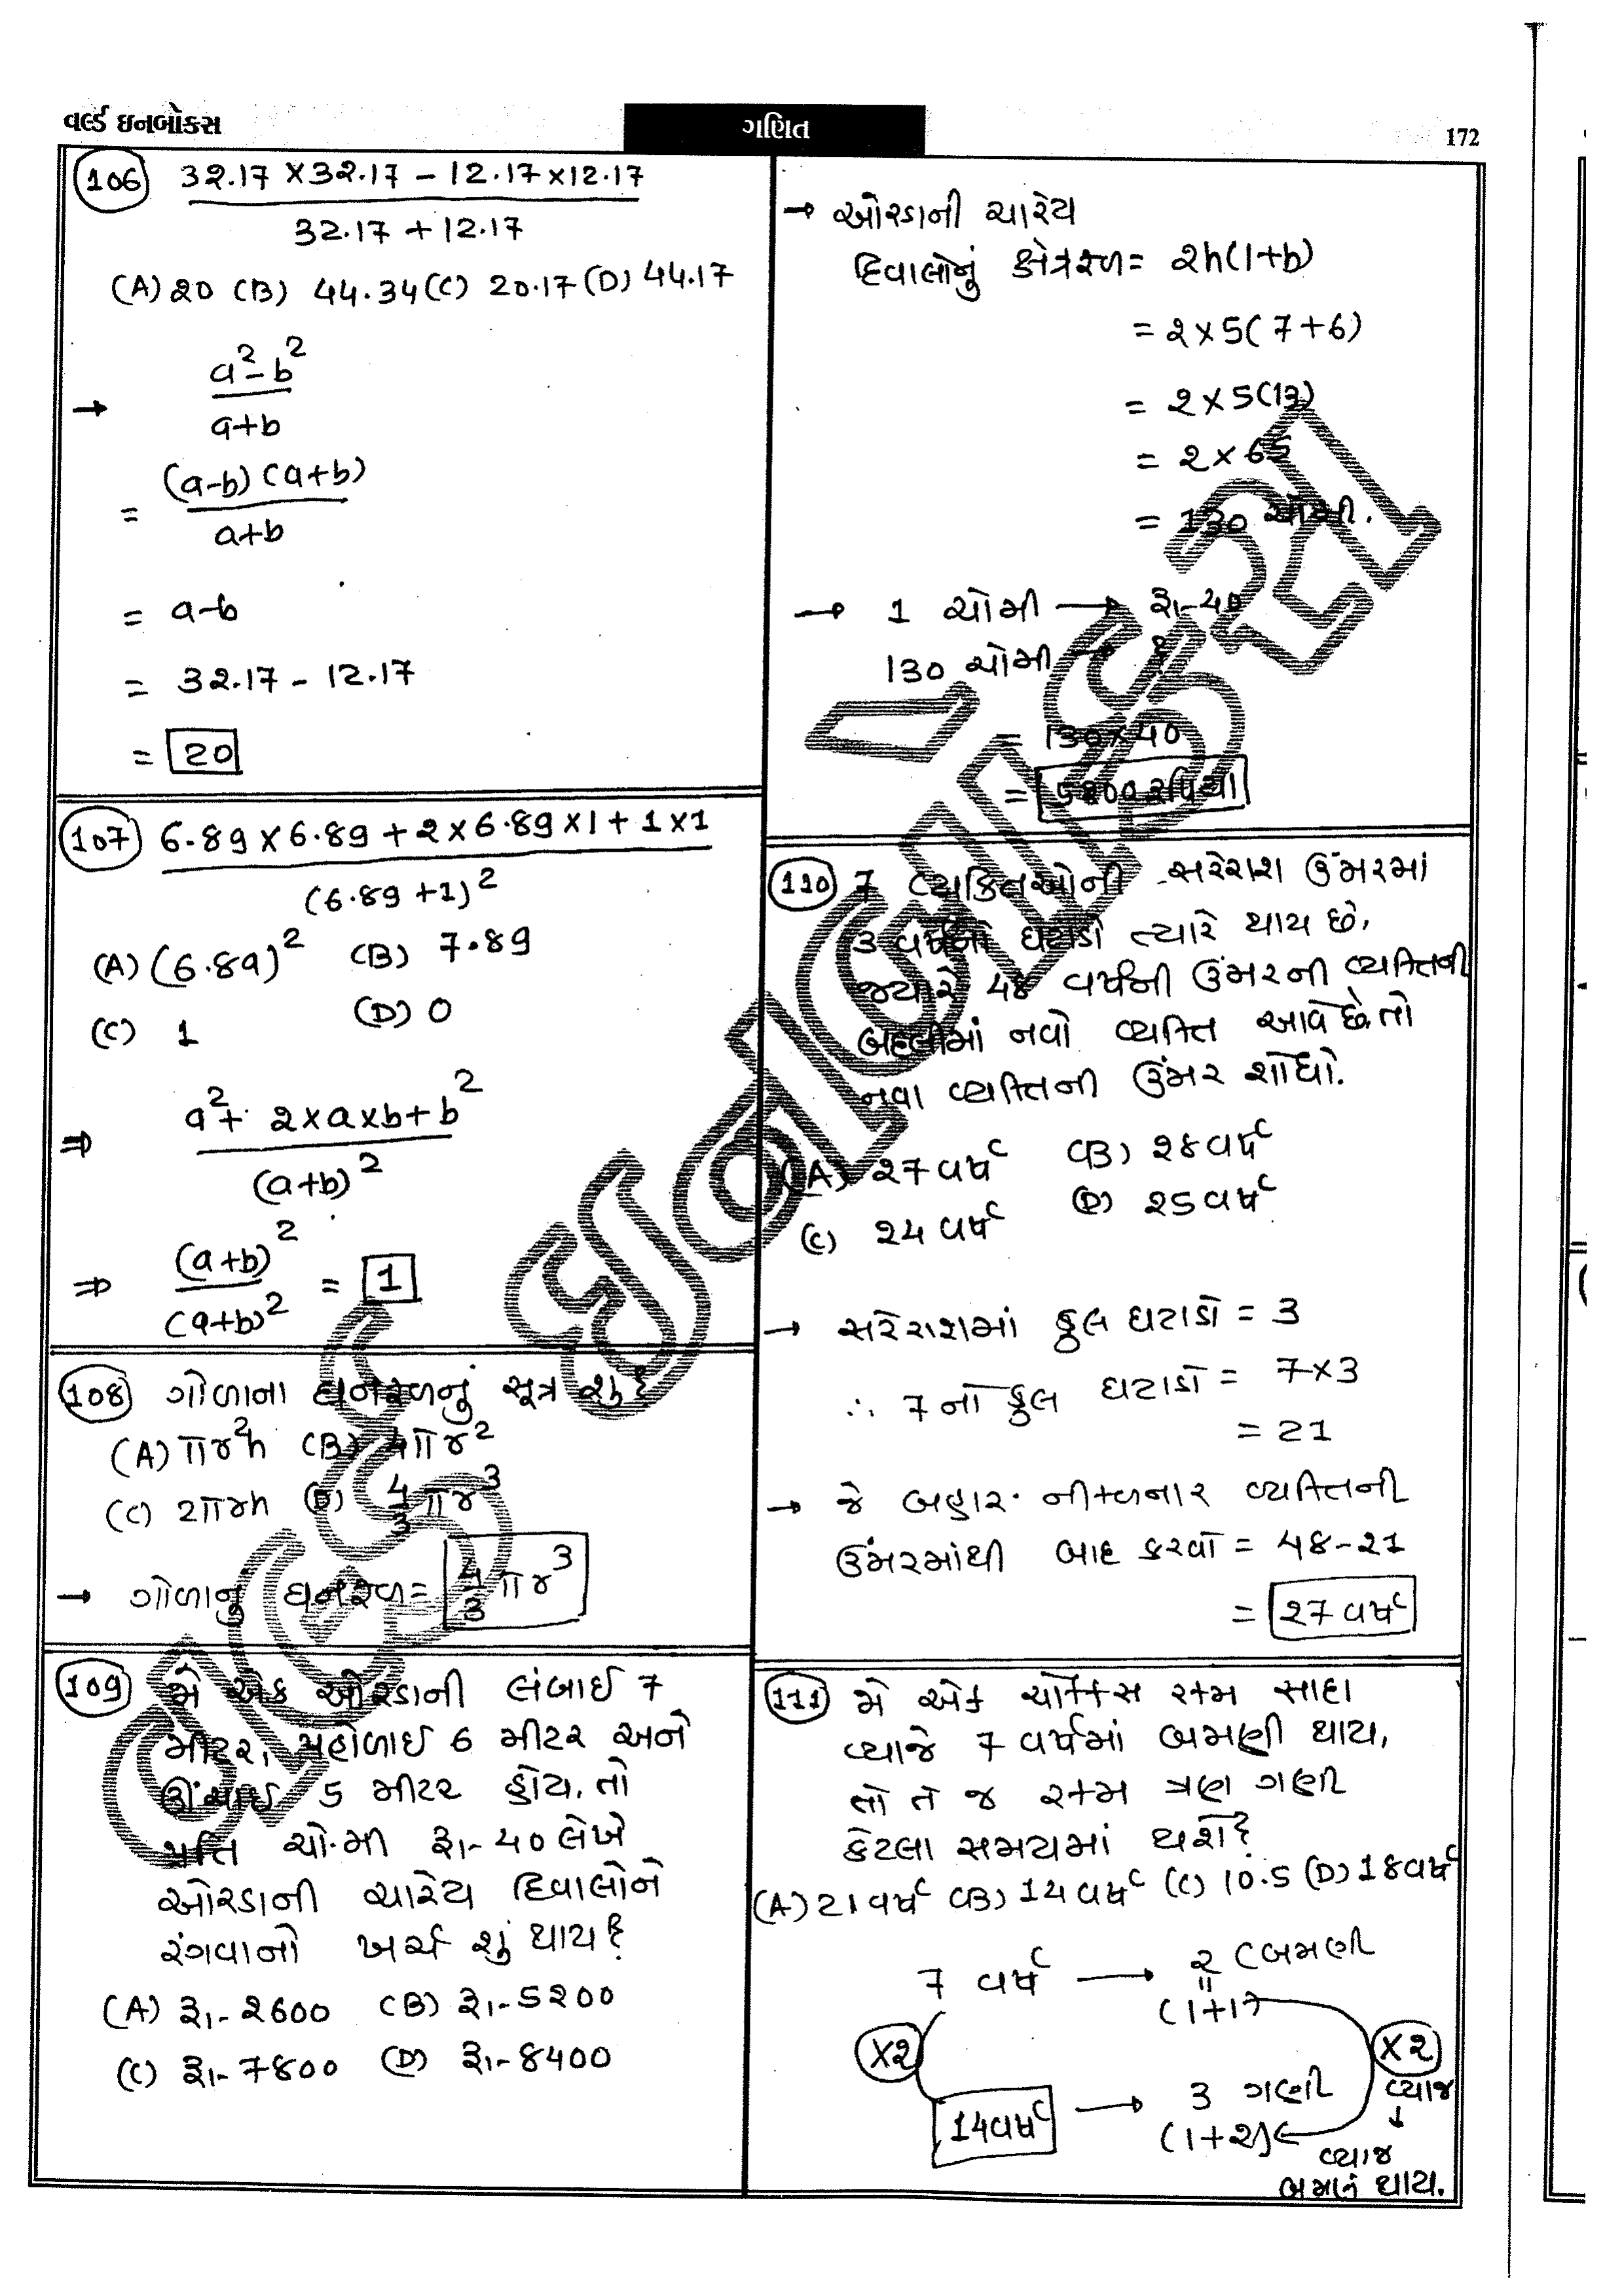 વર્લ્ડ ઇનબોકસ
ગણિત
172
106 32.17 × 32.17 − 12.17 × 12.17
32.17 + 12.17
(A) 20 (B) 44.34 (C) 20.17 (D) 44.17
→ a² − b²
a+b
= (a−b) (a+b)
a+b
= a−b
= 32.17 − 12.17
= 20
107 6.89 × 6.89 + 2 × 6.89 × 1 + 1 × 1
(6.89 + 1)²
(A) (6.89)² (B) 7.89
(C) 1 (D) 0
⇒ a² + 2×a×b + b²
(a+b)²
⇒ (a+b)²
(a+b)² = 1
108 ગોળાના ઘનફળનું સૂત્ર શું?
(A) πr²h (B) 4πr²
(C) 2πrh (D) 4/3 πr³
→ ગોળાનું ઘનફળ = 4/3 πr³
109 જો એક ઓરડાની લંબાઈ 7
મીટર, પહોળાઈ 6 મીટર અને
ઊંચાઈ 5 મીટર હોય, તો
પ્રતિ ચો.મી રૂા.- 40 લેખે
ઓરડાની ચારેય દિવાલોને
રંગવાનો ખર્ચ શું થાય?
(A) રૂા.- 2600 (B) રૂા.- 5200
(C) રૂા.- 7800 (D) રૂા.- 8400
→ ઓરડાની ચારેય
દિવાલોનું ક્ષેત્રફળ = 2h(l+b)
= 2×5(7+6)
= 2×5(13)
= 2×65
= 130 ચોમી.
→ 1 ચોમી → રૂા.- 40
130 ચોમી → ?
= 130×40
= 5200 રૂપિયા
110 7 વ્યકિતઓની સરેરાશ ઉંમરમાં
3 વર્ષનો ઘટાડો ત્યારે થાય છે,
જ્યારે 48 વર્ષની ઉંમરની વ્યક્તિની
બદલીમાં નવો વ્યક્તિ આવે છે, તો
નવા વ્યક્તિની ઉંમર શોધો.
(A) 27 વર્ષ (B) 28 વર્ષ
(C) 24 વર્ષ (D) 25 વર્ષ
→ સરેરાશમાં કુલ ઘટાડો = 3
∴ 7 નો કુલ ઘટાડો = 7×3
= 21
→ જે બહાર નીકળનાર વ્યક્તિની
ઉંમરમાંથી બાદ કરવો = 48−21
= 27 વર્ષ
111 જો એક ચોક્કસ રકમ સાદા
વ્યાજે 7 વર્ષમાં બમણી થાય,
તો તે જ રકમ ત્રણ ગણી
કેટલા સમયમાં થશે?
(A) 21 વર્ષ (B) 14 વર્ષ (C) 10.5 (D) 18 વર્ષ
7 વર્ષ → 2 (બમણી
(1+1)
×2 ×2
વ્યાજ
14 વર્ષ → 3 ગણી
(1+2)
વ્યાજ
બમાનું થાય.
વર્લ્ડ ઇનબોક્સ - 2019